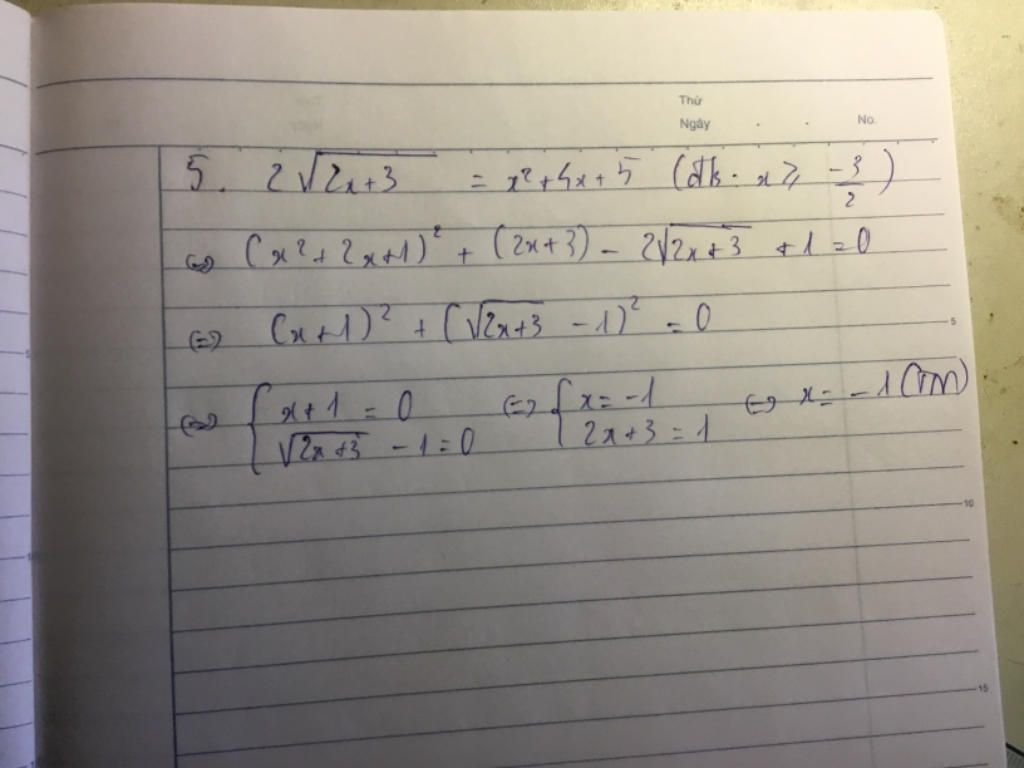 Thứ
Ngày . . No.
5. 2√(2x+3) = x²+4x+5 (đk: x ≥ -3/2)
⇔ (x²+2x+1)² + (2x+3) - 2√(2x+3) + 1 = 0
⇔ (x+1)² + (√(2x+3) - 1)² = 0
5
⇔ { x+1 = 0 ⇔ { x = -1 ⇔ x = -1 (TM)
√(2x+3) - 1 = 0 2x+3 = 1
10
15